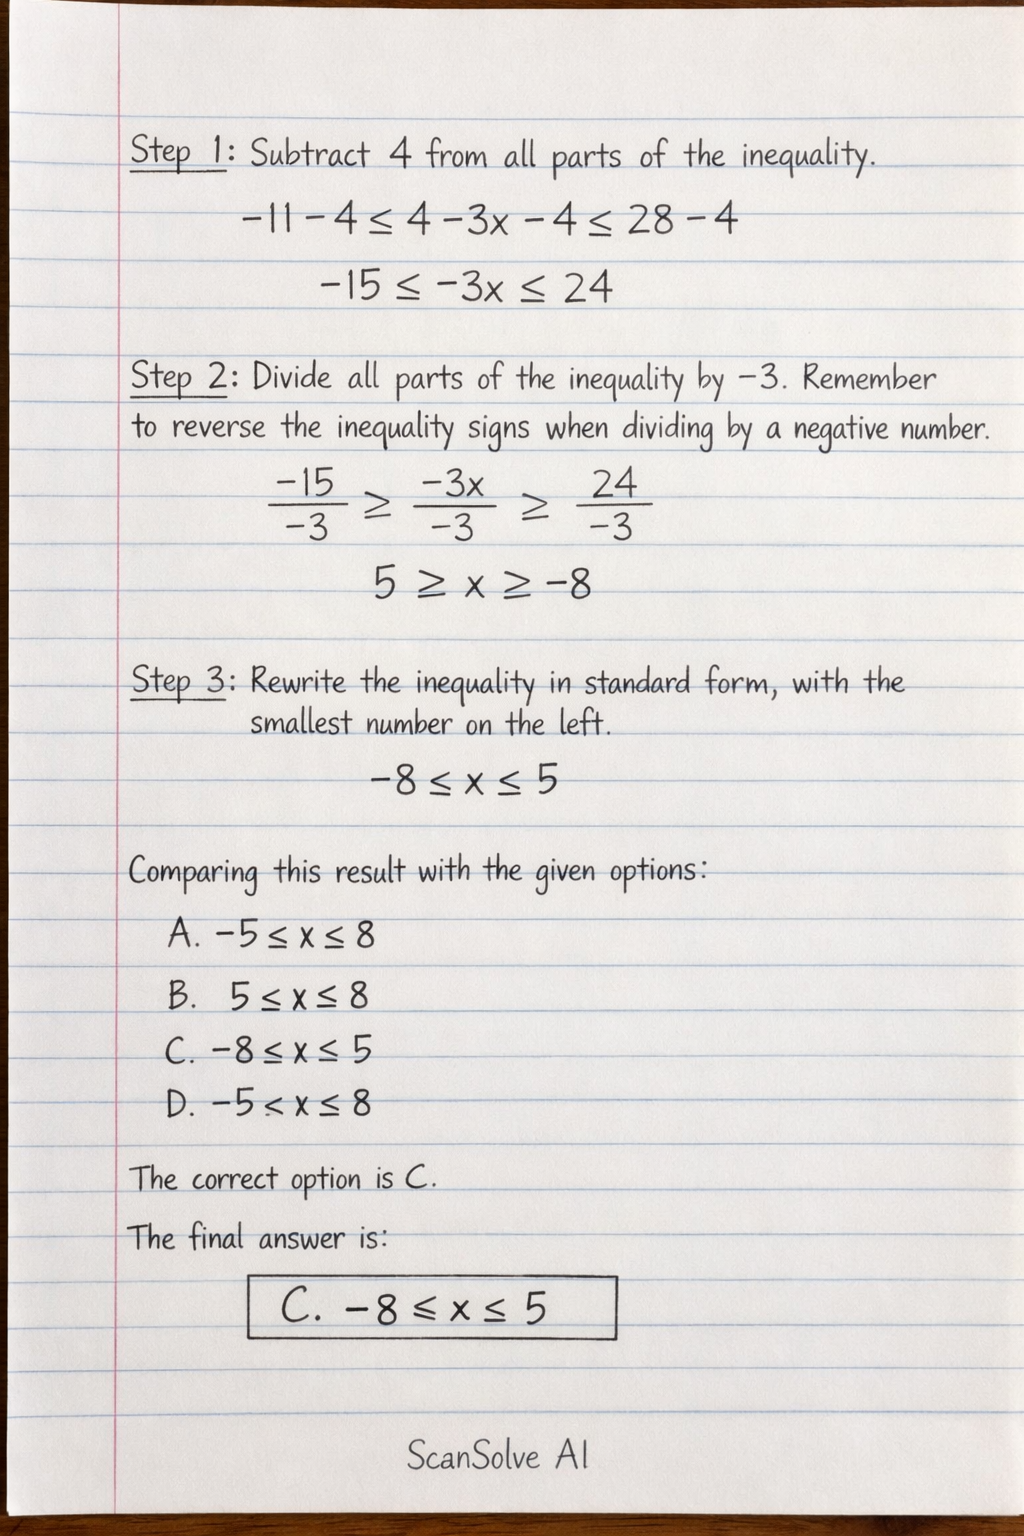 Step 1: Subtract 4 from all parts of the inequality.
-11 - 4 ≤ 4 - 3x - 4 ≤ 28 - 4
-15 ≤ -3x ≤ 24
Step 2: Divide all parts of the inequality by -3. Remember
to reverse the inequality signs when dividing by a negative number.
-15/-3 ≥ -3x/-3 ≥ 24/-3
5 ≥ x ≥ -8
Step 3: Rewrite the inequality in standard form, with the
smallest number on the left.
-8 ≤ x ≤ 5
Comparing this result with the given options:
A. -5 ≤ x ≤ 8
B. 5 ≤ x ≤ 8
C. -8 ≤ x ≤ 5
D. -5 < x ≤ 8
The correct option is C.
The final answer is:
C. -8 ≤ x ≤ 5
ScanSolve AI